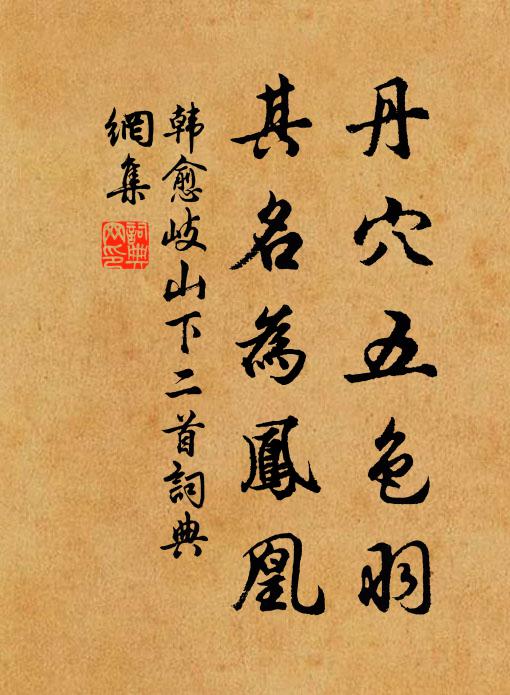 丹穴五色羽
其名為鳳凰
韩愈岐山下二首詞典
網集
詞典网印